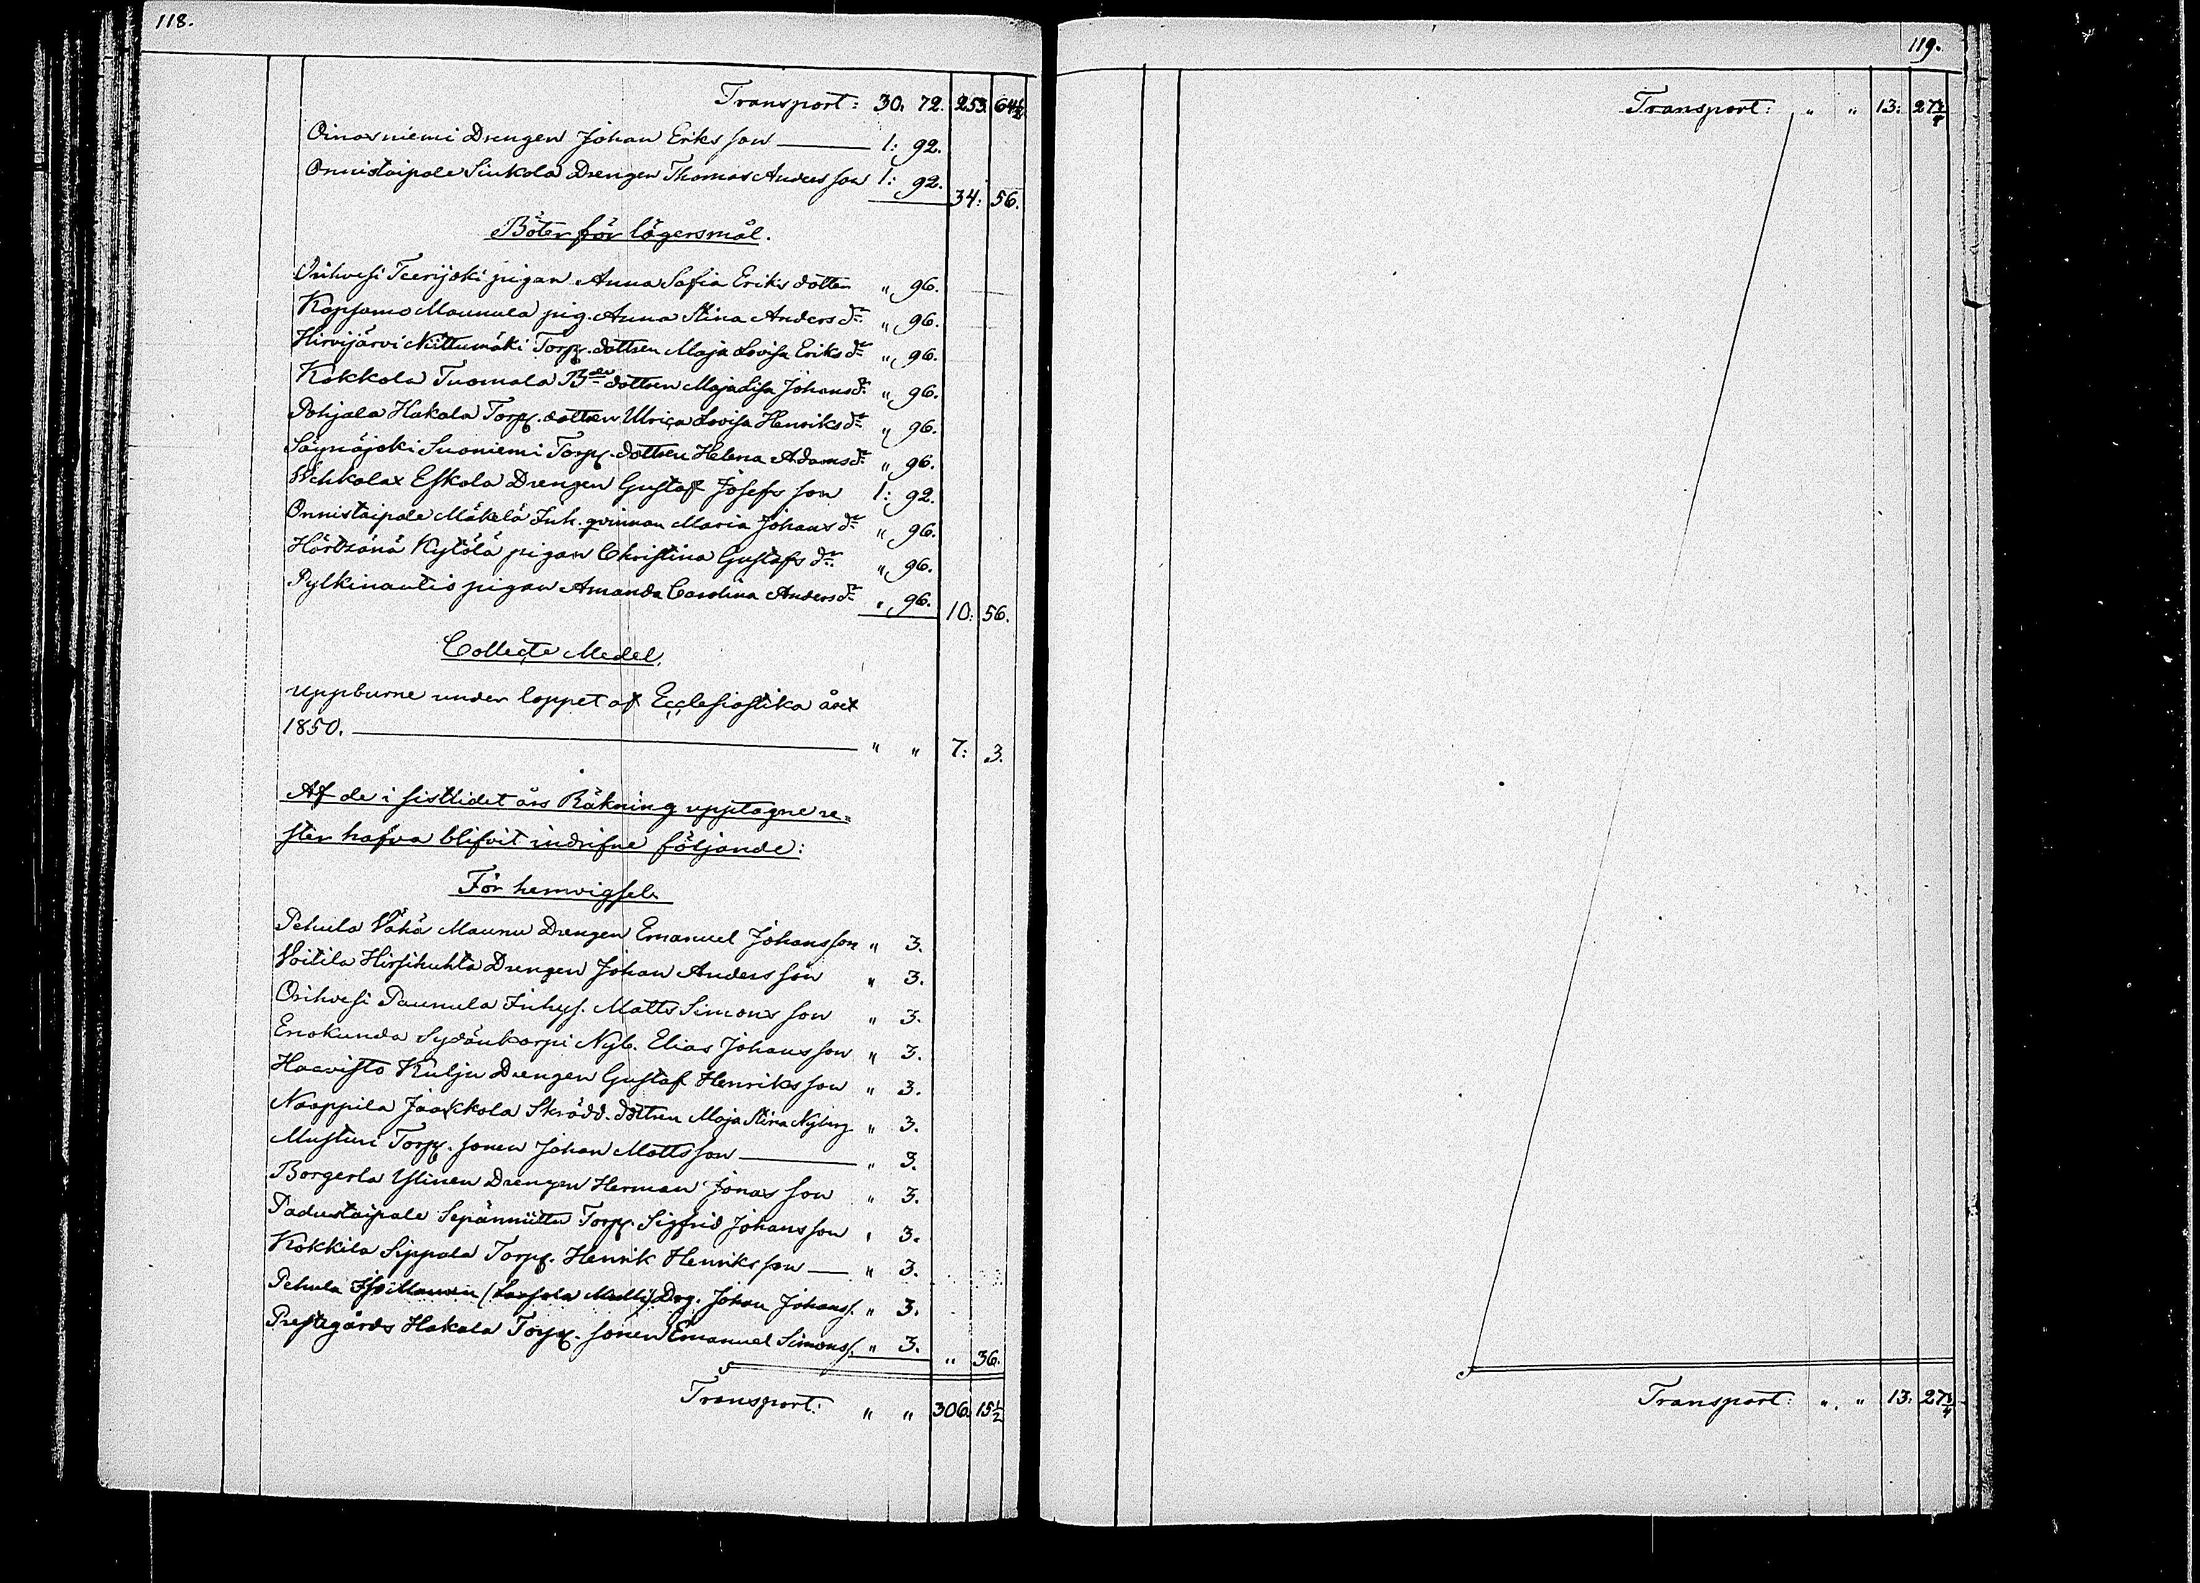 118.
Transport: 30. 72. 253. 64 1/2
Oinasniemi Drengen Johan Eriksson 1: 92.
Onnistaipale Siukola Drengen Thomas Andersson 1: 92. 34: 56.
Böter för lägersmål.
Orihvesi Teerijoki pigan Anna Sofia Eriks dotter " 96.
Kopsamo Maunula pig. Anna Stina Anders dr " 96.
Hirvijärvi Nittumäki Torp. dottren Maja Lovisa Eriks dr " 96.
Kokkola Tuomala Bde dottren Maja Lisa Johans dr " 96.
Pohjala Hakala Torp. dottren Ulrica Lovisa Henriks dr " 96.
Säynäjoki Suoniemi Torp. dottren Helena Adams dr " 96.
Wehkalax Eskola Drengen Gustaf Josefsson 1: 92.
Onnistaipale Mäkelä Inh. qvinnan Maria Johans dr " 96.
Kytölä pigan Christina Gustafs dr " 96.
pigan Amanda Carolina Anders dr " 96. 10: 56.
Collecte Medel,
uppburne under loppet af Ecclesiastika året
1850. " " 7: 3.
Af de i sistlidet års Räkning upptagne re=
ster hafva blifvit indrifne följande:
För hemvigsel.
Pehula Vähä Maunu Drengen Emanuel Johansson " 3.
Voitila Hirsihuhta Drengen Johan Andersson " 3.
Orihvesi Paunula Inhys. Matts Simonsson " 3.
Enokunda Sydänkorpi Nyb. Elias Johansson " 3.
Haavisto Kulju Drengen Gustaf Henriksson " 3.
Naappila Jaakkola Skrädd. dottren Maja Stina Nyberg " 3.
Torp. sonen Johan Mattsson " 3.
Borgerla Ylinen Drengen Herman Jonasson " 3.
Padustaipale Sepänniittu Torp. Sigfrid Johansson " 3.
Kokkila Sippala Torp. Henrik Henriksson " 3.
Pehula Drg. Johan Johanss. " 3.
Prestegårds Hakala Torp. sonen Emanuel Simonss. " 3. " 36.
Transport: " " 306. 15 1/2
119.
Transport: " " 13: 27 3/4
Transport: " " 13: 27 3/4